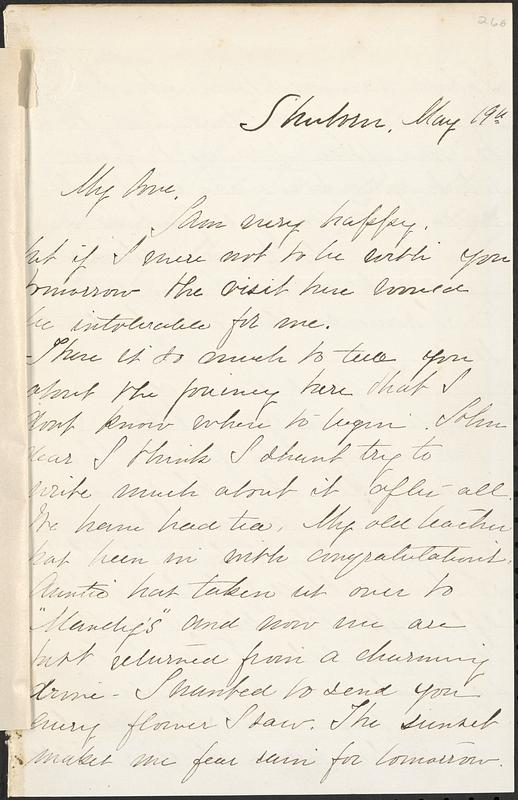 268
May 19th
My love,
I am very happy.
but if I were not to be with you
tomorrow the visit here would
be intolerable for me.
There is so much to tell you
about the journey here that I
dont know where to begin. John
dear I think I shant try to
write much about it after all.
We have had tea. My old teacher
has been in with congratulations.
Auntie has taken us over to
and now we are
just returned from a charming
drive - I wanted to send you
every flower I saw. The sunset
makes me fear rain for tomorrow.